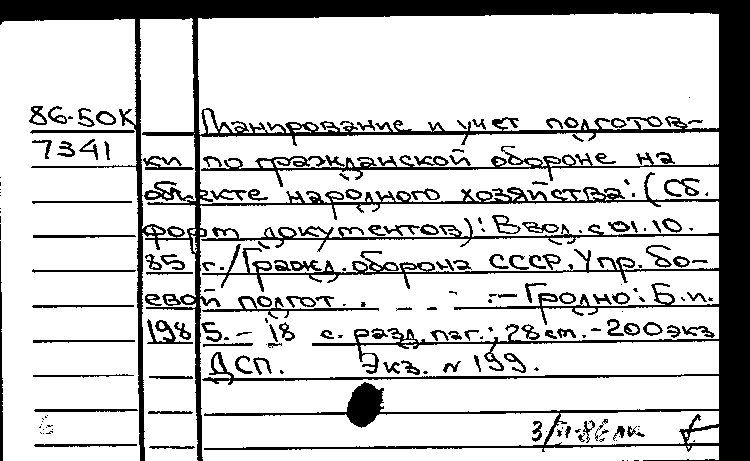 86-50К Планирование и учет подготов-
7341 ки по гражданской обороне на
объекте народного хозяйства: (Сб.
форм документов): Ввод. с 01.10.
85 г./Гражд. оборона СССР. Упр. бо-
евой подгот. . - - - .:-Гродно: Б.и.
1985.- 18 с. разд. паг.; 28 см. -200 экз
ДСП. Экз. N 199.
6